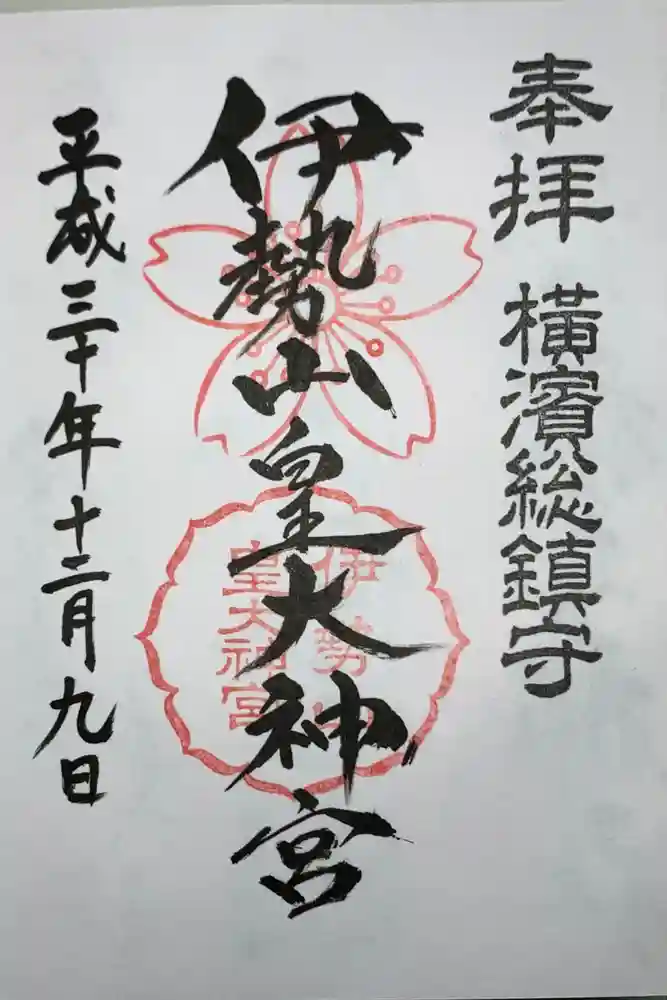 奉拝 横濱総鎮守
伊勢山皇大神宮
伊勢山
皇大神宮
平成三十年十二月九日